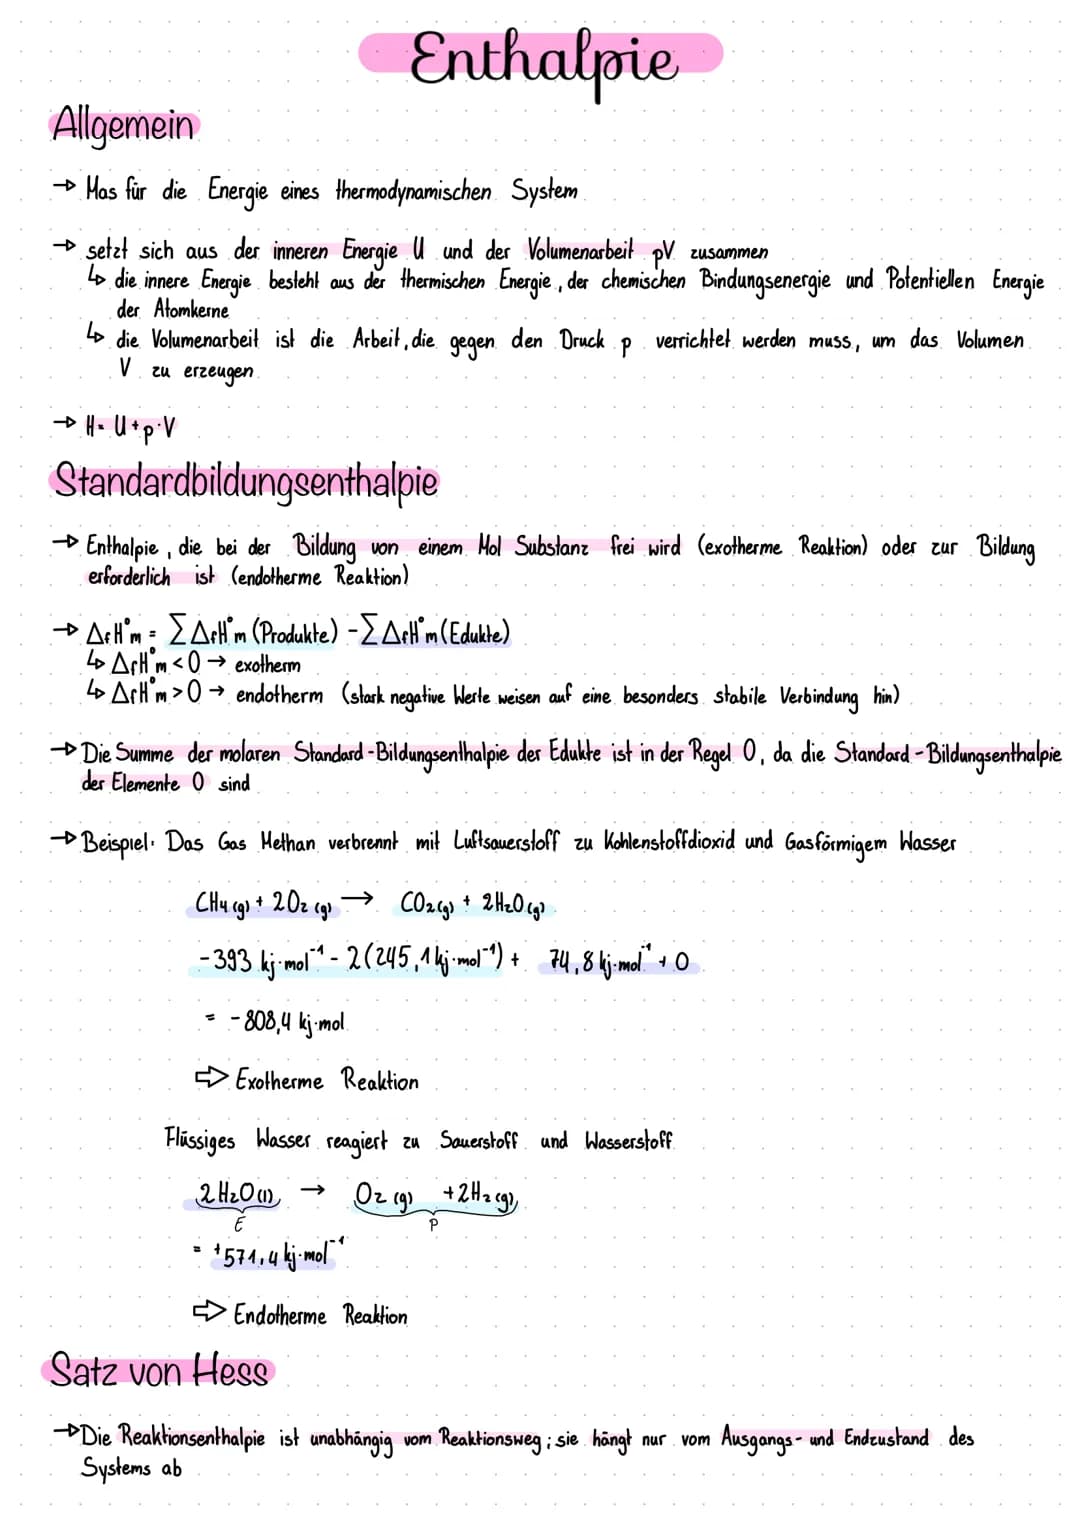 Enthalpie
Allgemein
→ Mas für die Energie eines thermodynamischen System
→ setzt sich aus der inneren Energie U und der Volumenarbeit pV zusammen
↳ die innere Energie besteht aus der thermischen Energie, der chemischen Bindungsenergie und Potentiellen Energie
der Atomkerne
↳ die Volumenarbeit ist die Arbeit, die gegen den Druck p verrichtet werden muss, um das Volumen
V zu erzeugen
→ H = U + p·V
Standardbildungsenthalpie
→ Enthalpie, die bei der Bildung von einem Mol Substanz frei wird (exotherme Reaktion) oder zur Bildung
erforderlich ist (endotherme Reaktion)
→ ΔfH°m = ∑ΔfH°m (Produkte) - ∑ΔfH°m (Edukte)
↳ ΔfH°m < 0 → exotherm
↳ ΔfH°m > 0 → endotherm (stark negative Werte weisen auf eine besonders stabile Verbindung hin)
→ Die Summe der molaren Standard-Bildungsenthalpie der Edukte ist in der Regel 0, da die Standard-Bildungsenthalpie
der Elemente 0 sind
→ Beispiel: Das Gas Methan verbrennt mit Luftsauerstoff zu Kohlenstoffdioxid und Gasförmigem Wasser
CH4 (g) + 2O2 (g) → CO2 (g) + 2H2O (g)
-393 kj·mol⁻¹ - 2(245,1 kj·mol⁻¹) + 74,8 kj·mol⁻¹ + 0
= -808,4 kj·mol
⇨ Exotherme Reaktion
Flüssiges Wasser reagiert zu Sauerstoff und Wasserstoff
2H2O (l) → O2 (g) + 2H2 (g)
E P
= +571,4 kj·mol⁻¹
⇨ Endotherme Reaktion
Satz von Hess
→ Die Reaktionsenthalpie ist unabhängig vom Reaktionsweg; sie hängt nur vom Ausgangs- und Endzustand des
Systems ab